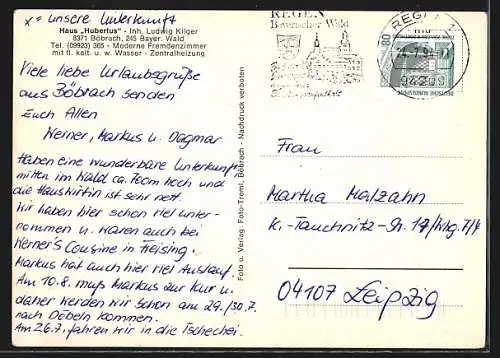 x = unsere Unterkunft
Haus „Hubertus" - Inh. Ludwig Kilger
8371 Böbrach, 245 Bayer. Wald
Tel. (09923) 365 - Moderne Fremdenzimmer
mit fl. kalt. u. w. Wasser - Zentralheizung
Viele liebe Urlaubsgrüße
aus Böbrach senden
Euch Allen
Werner, Markus u. Dagmar
Haben eine wunderbare Unterkunft,
mitten im Wald ca. 700m hoch und
die Hauswirtin ist sehr nett.
Wir haben hier schon viel unter-
nommen u. waren auch bei
Werner's Cousine in Freising.
Markus hat auch hier viel Auslauf.
Am 10.8. muß Markus zur Kur u.
daher werden wir schon am 29./30.7.
nach Döbeln kommen.
Am 26.7. fahren wir in die Tschechei.
Foto u. Verlag: Foto-Treml, Böbrach - Nachdruck verboten
REGEN
Bayerischer Wald
REGEN 1
24.-7.94
94209
80
DEUTSCHE BUNDESPOST
Frau
Martha Malzahn
K.-Tauchnitz-Str. 17/Whg. 7/4
04107 Leipzig